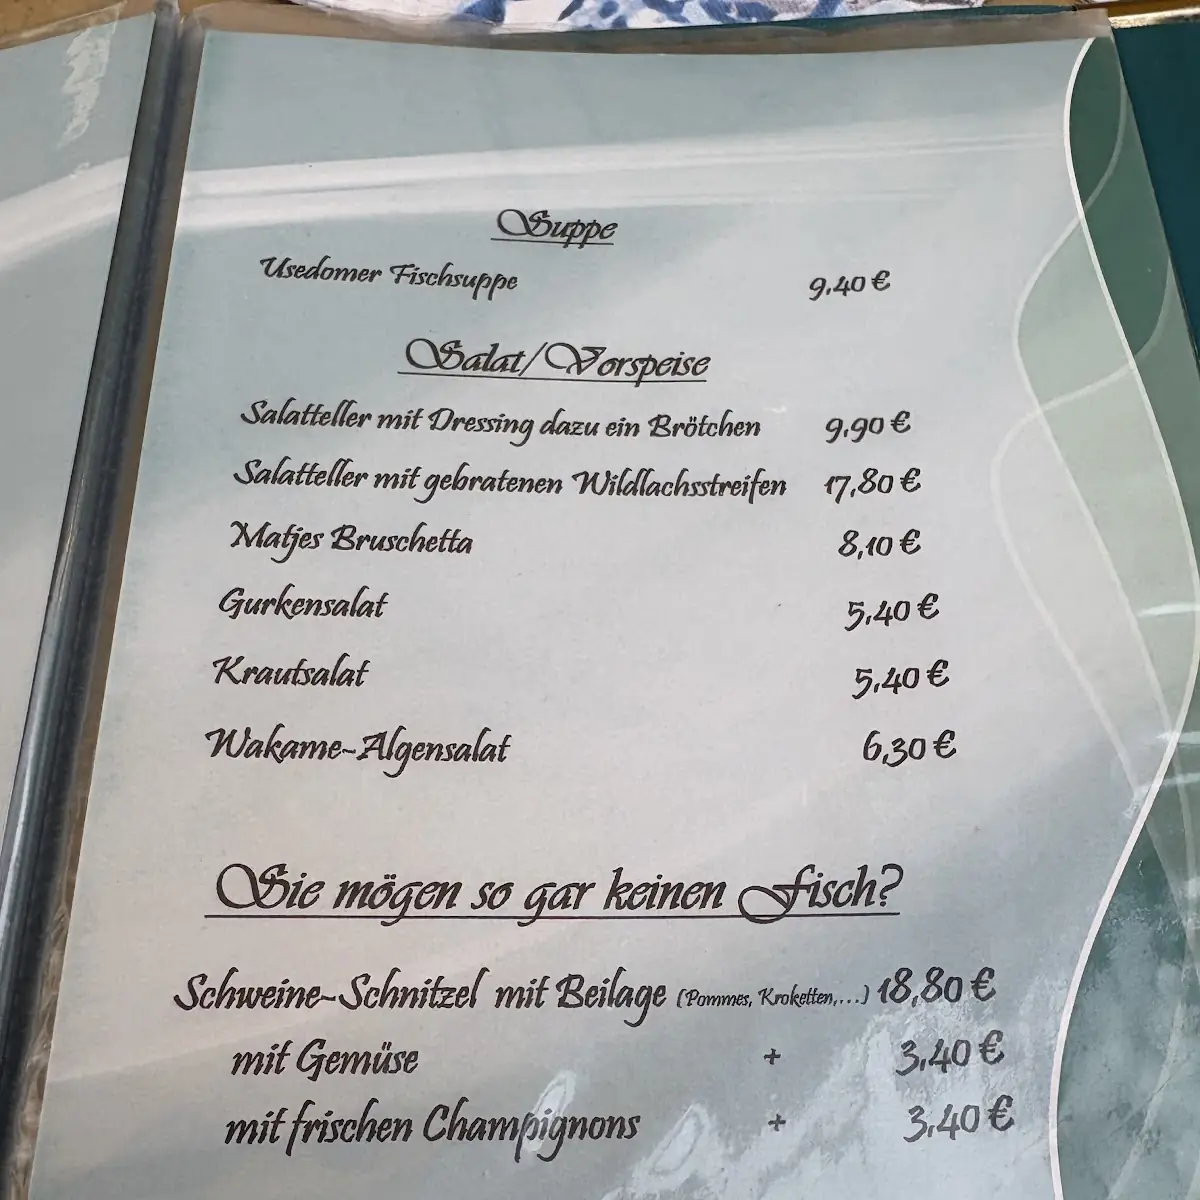 Suppe
Usedomer Fischsuppe 9,40 €
Salat/Vorspeise
Salatteller mit Dressing dazu ein Brötchen 9,90 €
Salatteller mit gebratenen Wildlachsstreifen 17,80 €
Matjes Bruschetta 8,10 €
Gurkensalat 5,40 €
Krautsalat 5,40 €
Wakame-Algensalat 6,30 €
Sie mögen so gar keinen Fisch?
Schweine-Schnitzel mit Beilage (Pommes, Kroketten,...) 18,80 €
mit Gemüse + 3,40 €
mit frischen Champignons + 3,40 €